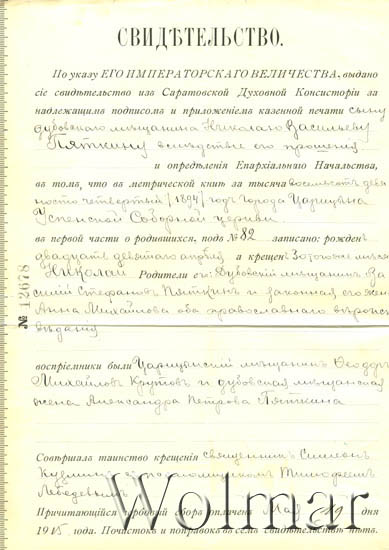 СВИДѢТЕЛЬСТВО.
По указу ЕГО ИМПЕРАТОРСКАГО ВЕЛИЧЕСТВА, выдано
сіе свидѣтельство изъ Саратовской Духовной Консисторіи за
надлежащимъ подписомъ и приложеніемъ казенной печати сыну
дубовскаго мѣщанина Николаю Васильеву
Пяткину вслѣдствіе его прошенія
и опредѣленія Епархіальнаго Начальства,
въ томъ, что въ метрической книгѣ за тысяча восемьсотъ девя
носто четвертый /1894/ годъ города Царицына
Успенской Соборной церкви
въ первой части о родившихся, подъ № 82 записано: рожденъ
двадцать девятаго апрѣля а крещенъ 30 того же мѣсяца
Николай Родители его: Дубовскій мѣщанинъ Ва
силій Стефановъ Пяткинъ и законная его жена
Анна Михайлова оба православнаго вѣроиспо
вѣданія
№ 12678
воспріемники были Царицынскій мѣщанинъ Ѳеодоръ
Михайловъ Крутовъ и дубовская мѣщанская
жена Александра Петрова Пяткина
Совершалъ таинство крещенія священникъ Симеонъ
Кузминъ съ псаломщикомъ Тимофеемъ
Лебедевымъ
Причитающійся гербовый сборъ оплаченъ Мая 19 дня
1915 года. Почистокъ и поправокъ въ семъ свидѣтельствѣ нѣтъ.
Wolmar